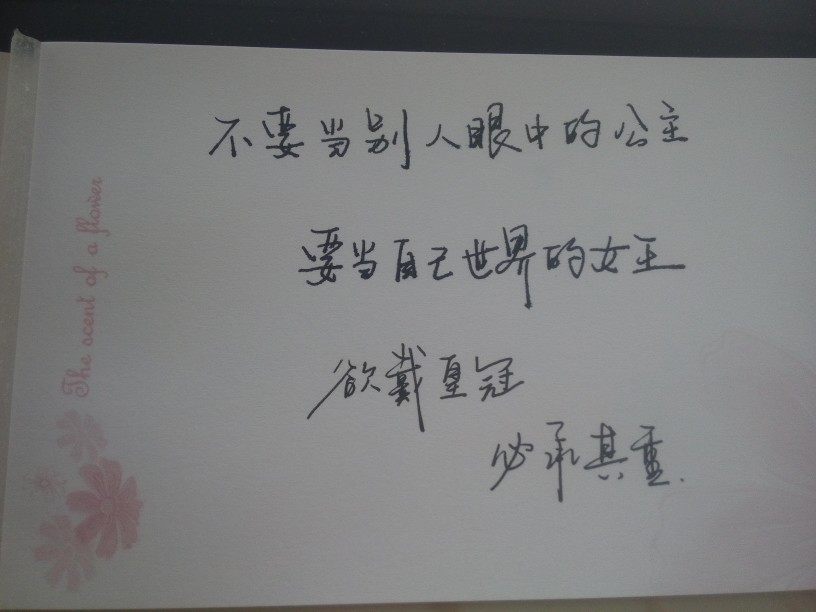 不要当别人眼中的公主
要当自己世界的女王
欲戴皇冠
必承其重.
The scent of a flower